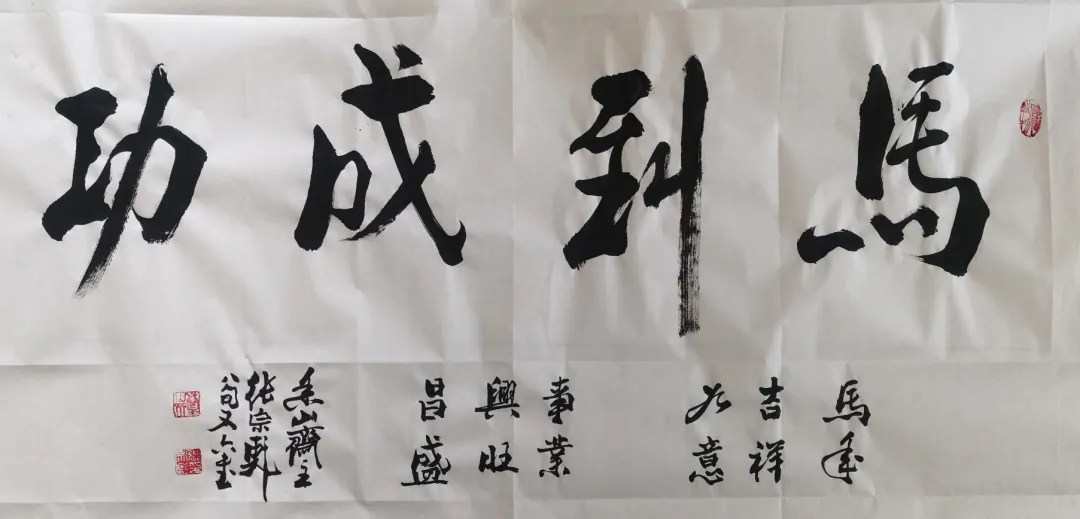 馬到成功
馬年
吉祥
如意
事業
興旺
昌盛
山齋主
張宗
八旬又六